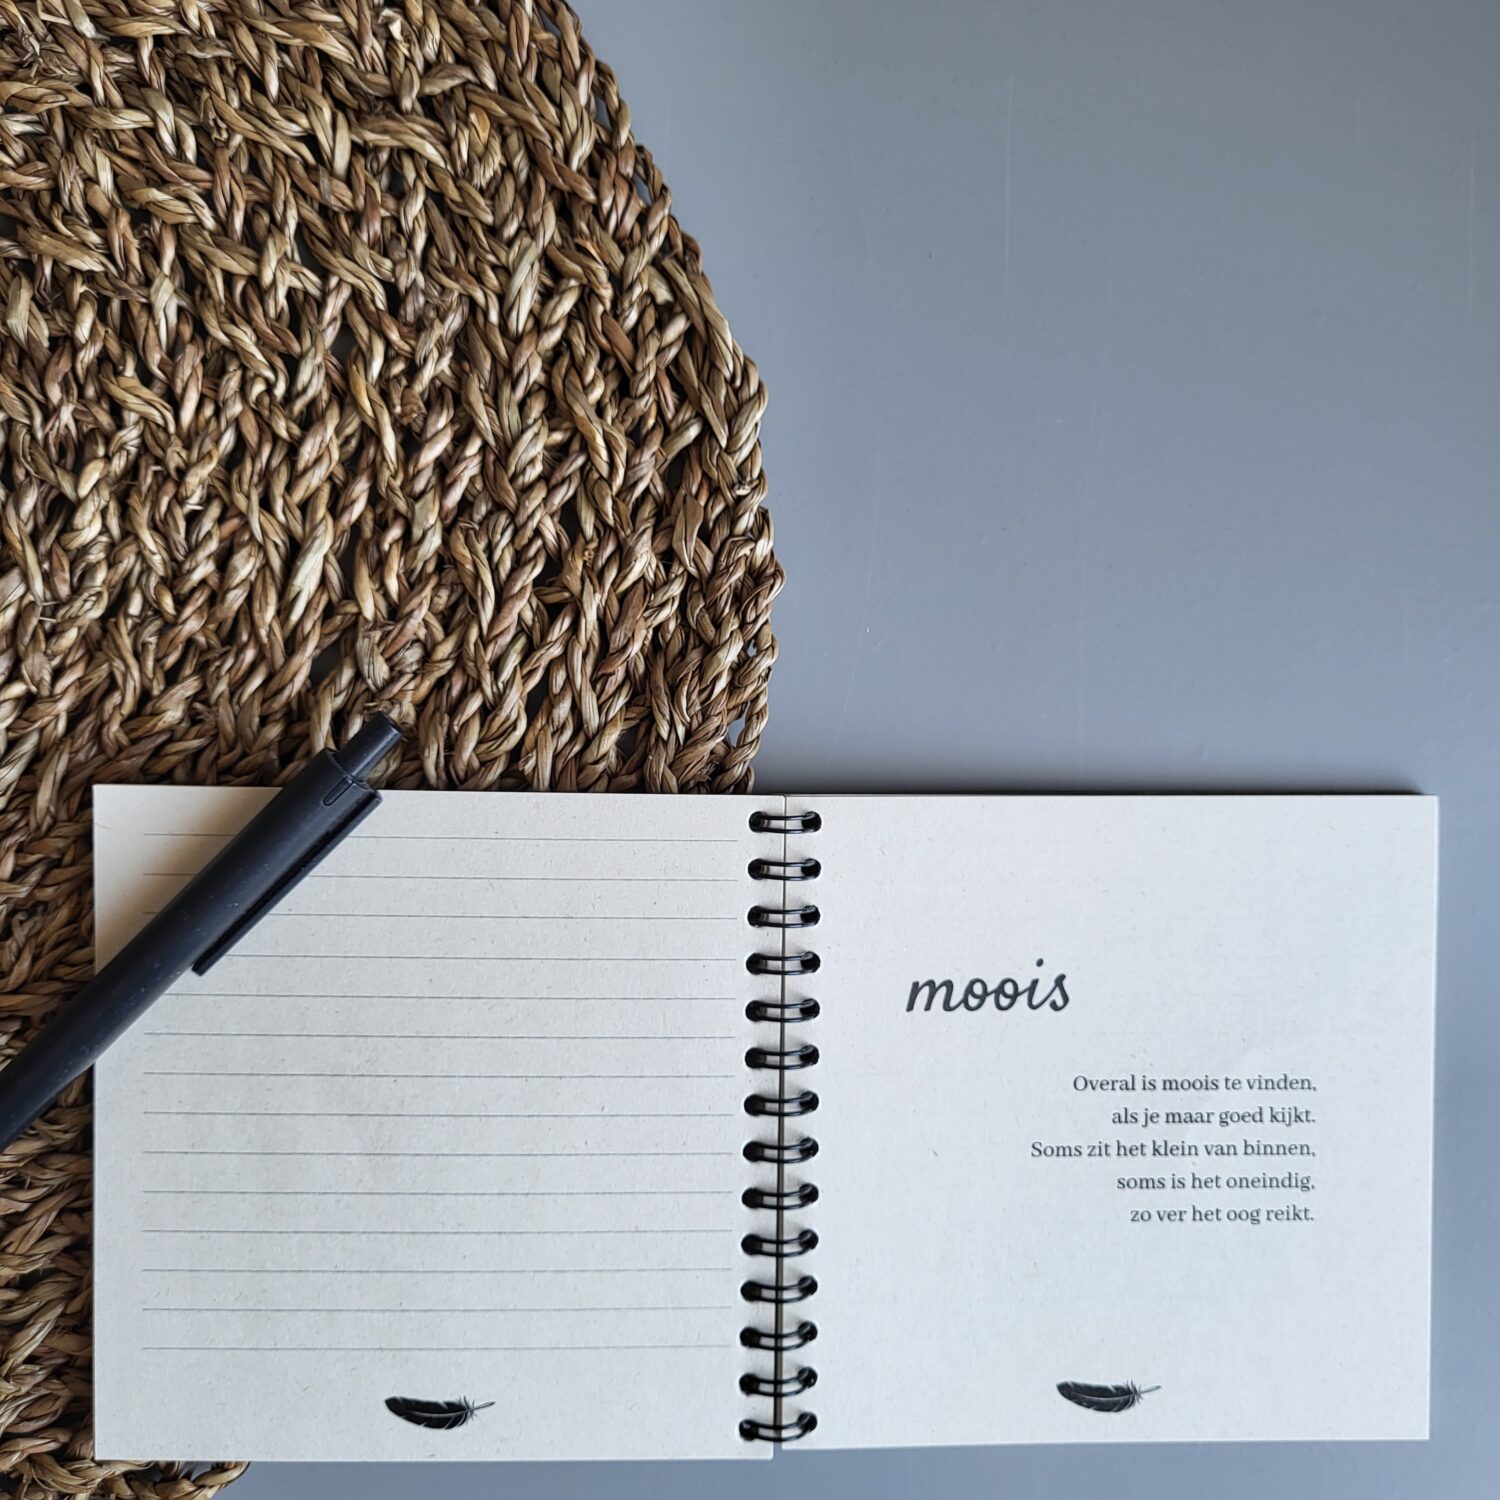 moois
Overal is moois te vinden,
als je maar goed kijkt.
Soms zit het klein van binnen,
soms is het oneindig,
zo ver het oog reikt.